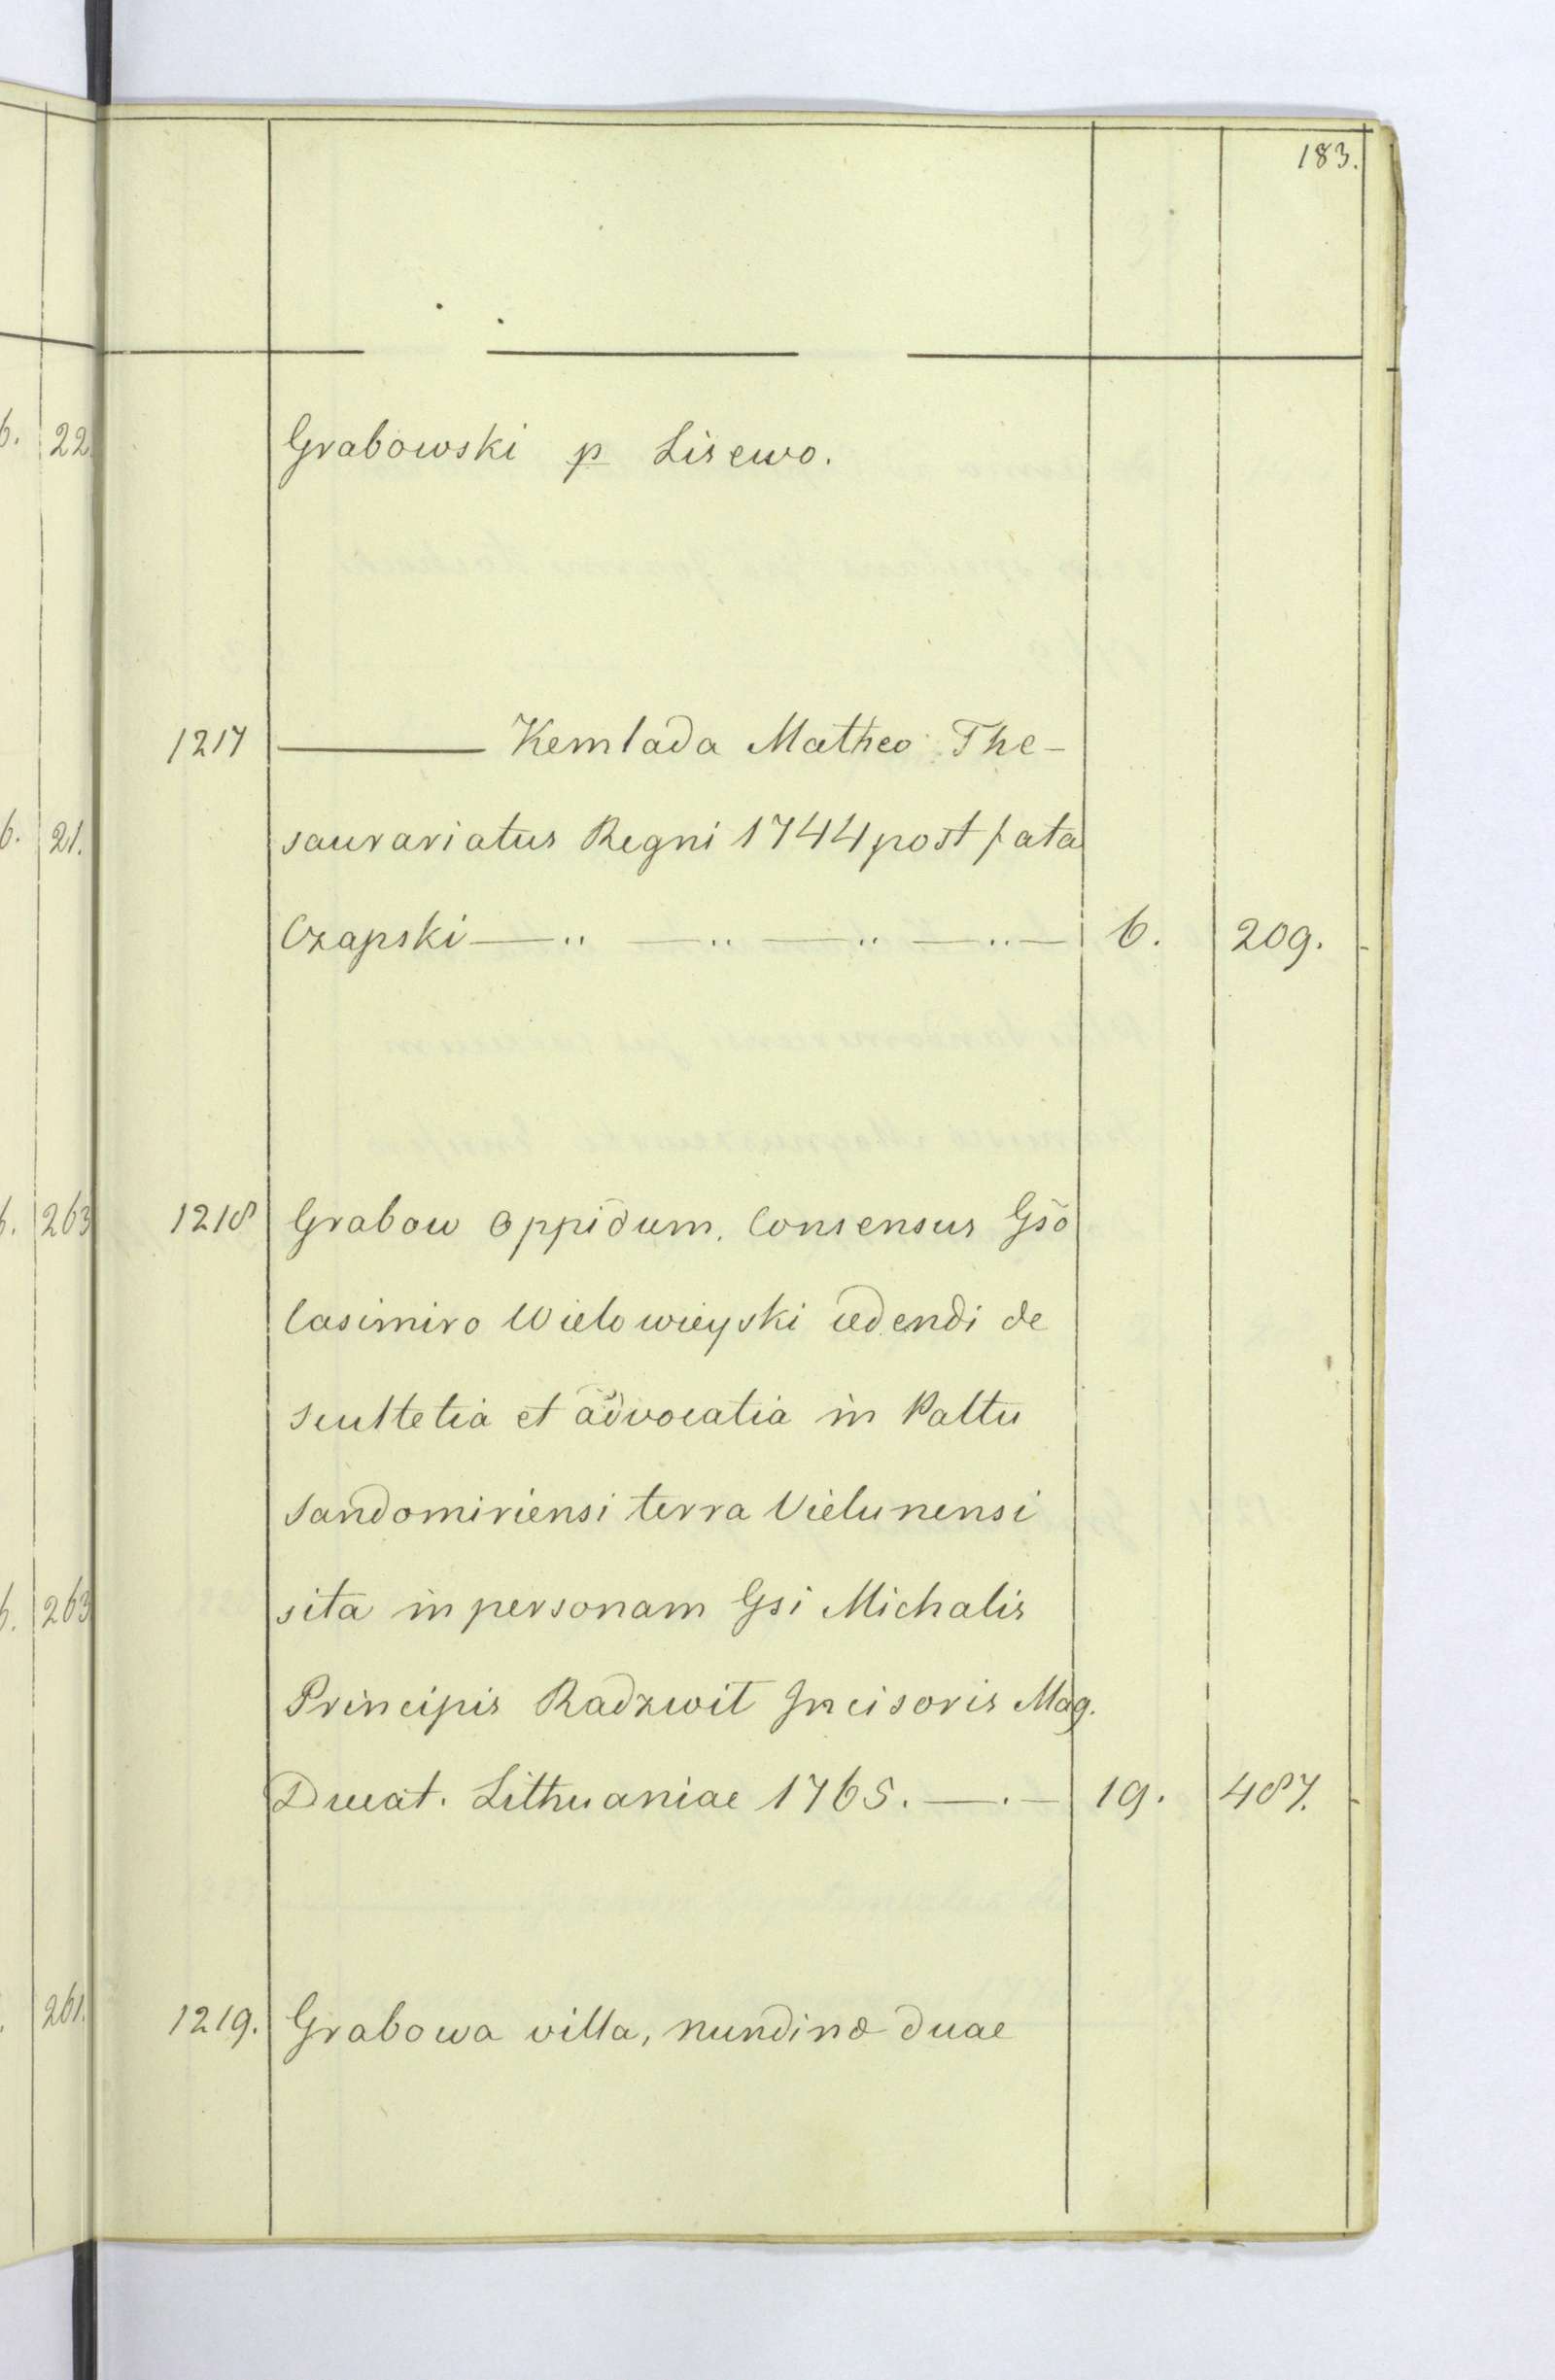 183.
6. 22.
Grabowski p Lisewo.
1217 ——— Kemlada Matheo The-
6. 21.
saurariatus Regni 1744 post fata
Czapski —" —" —" —"— 6. 209.
6. 263
1218 Grabow oppidum. Consensus Gso
Casimiro Wielowieyski cedendi de
scultetia et advocatia in Paltu
Sandomiriensi terra Vielunensi
6. 263
sita in personam Gsi Michalis
Principis Radzwit Incisoris Mag.
Ducat. Lithuaniae 1765. —.— 19. 487.
261.
1219. Grabowa villa, nundinæ duae